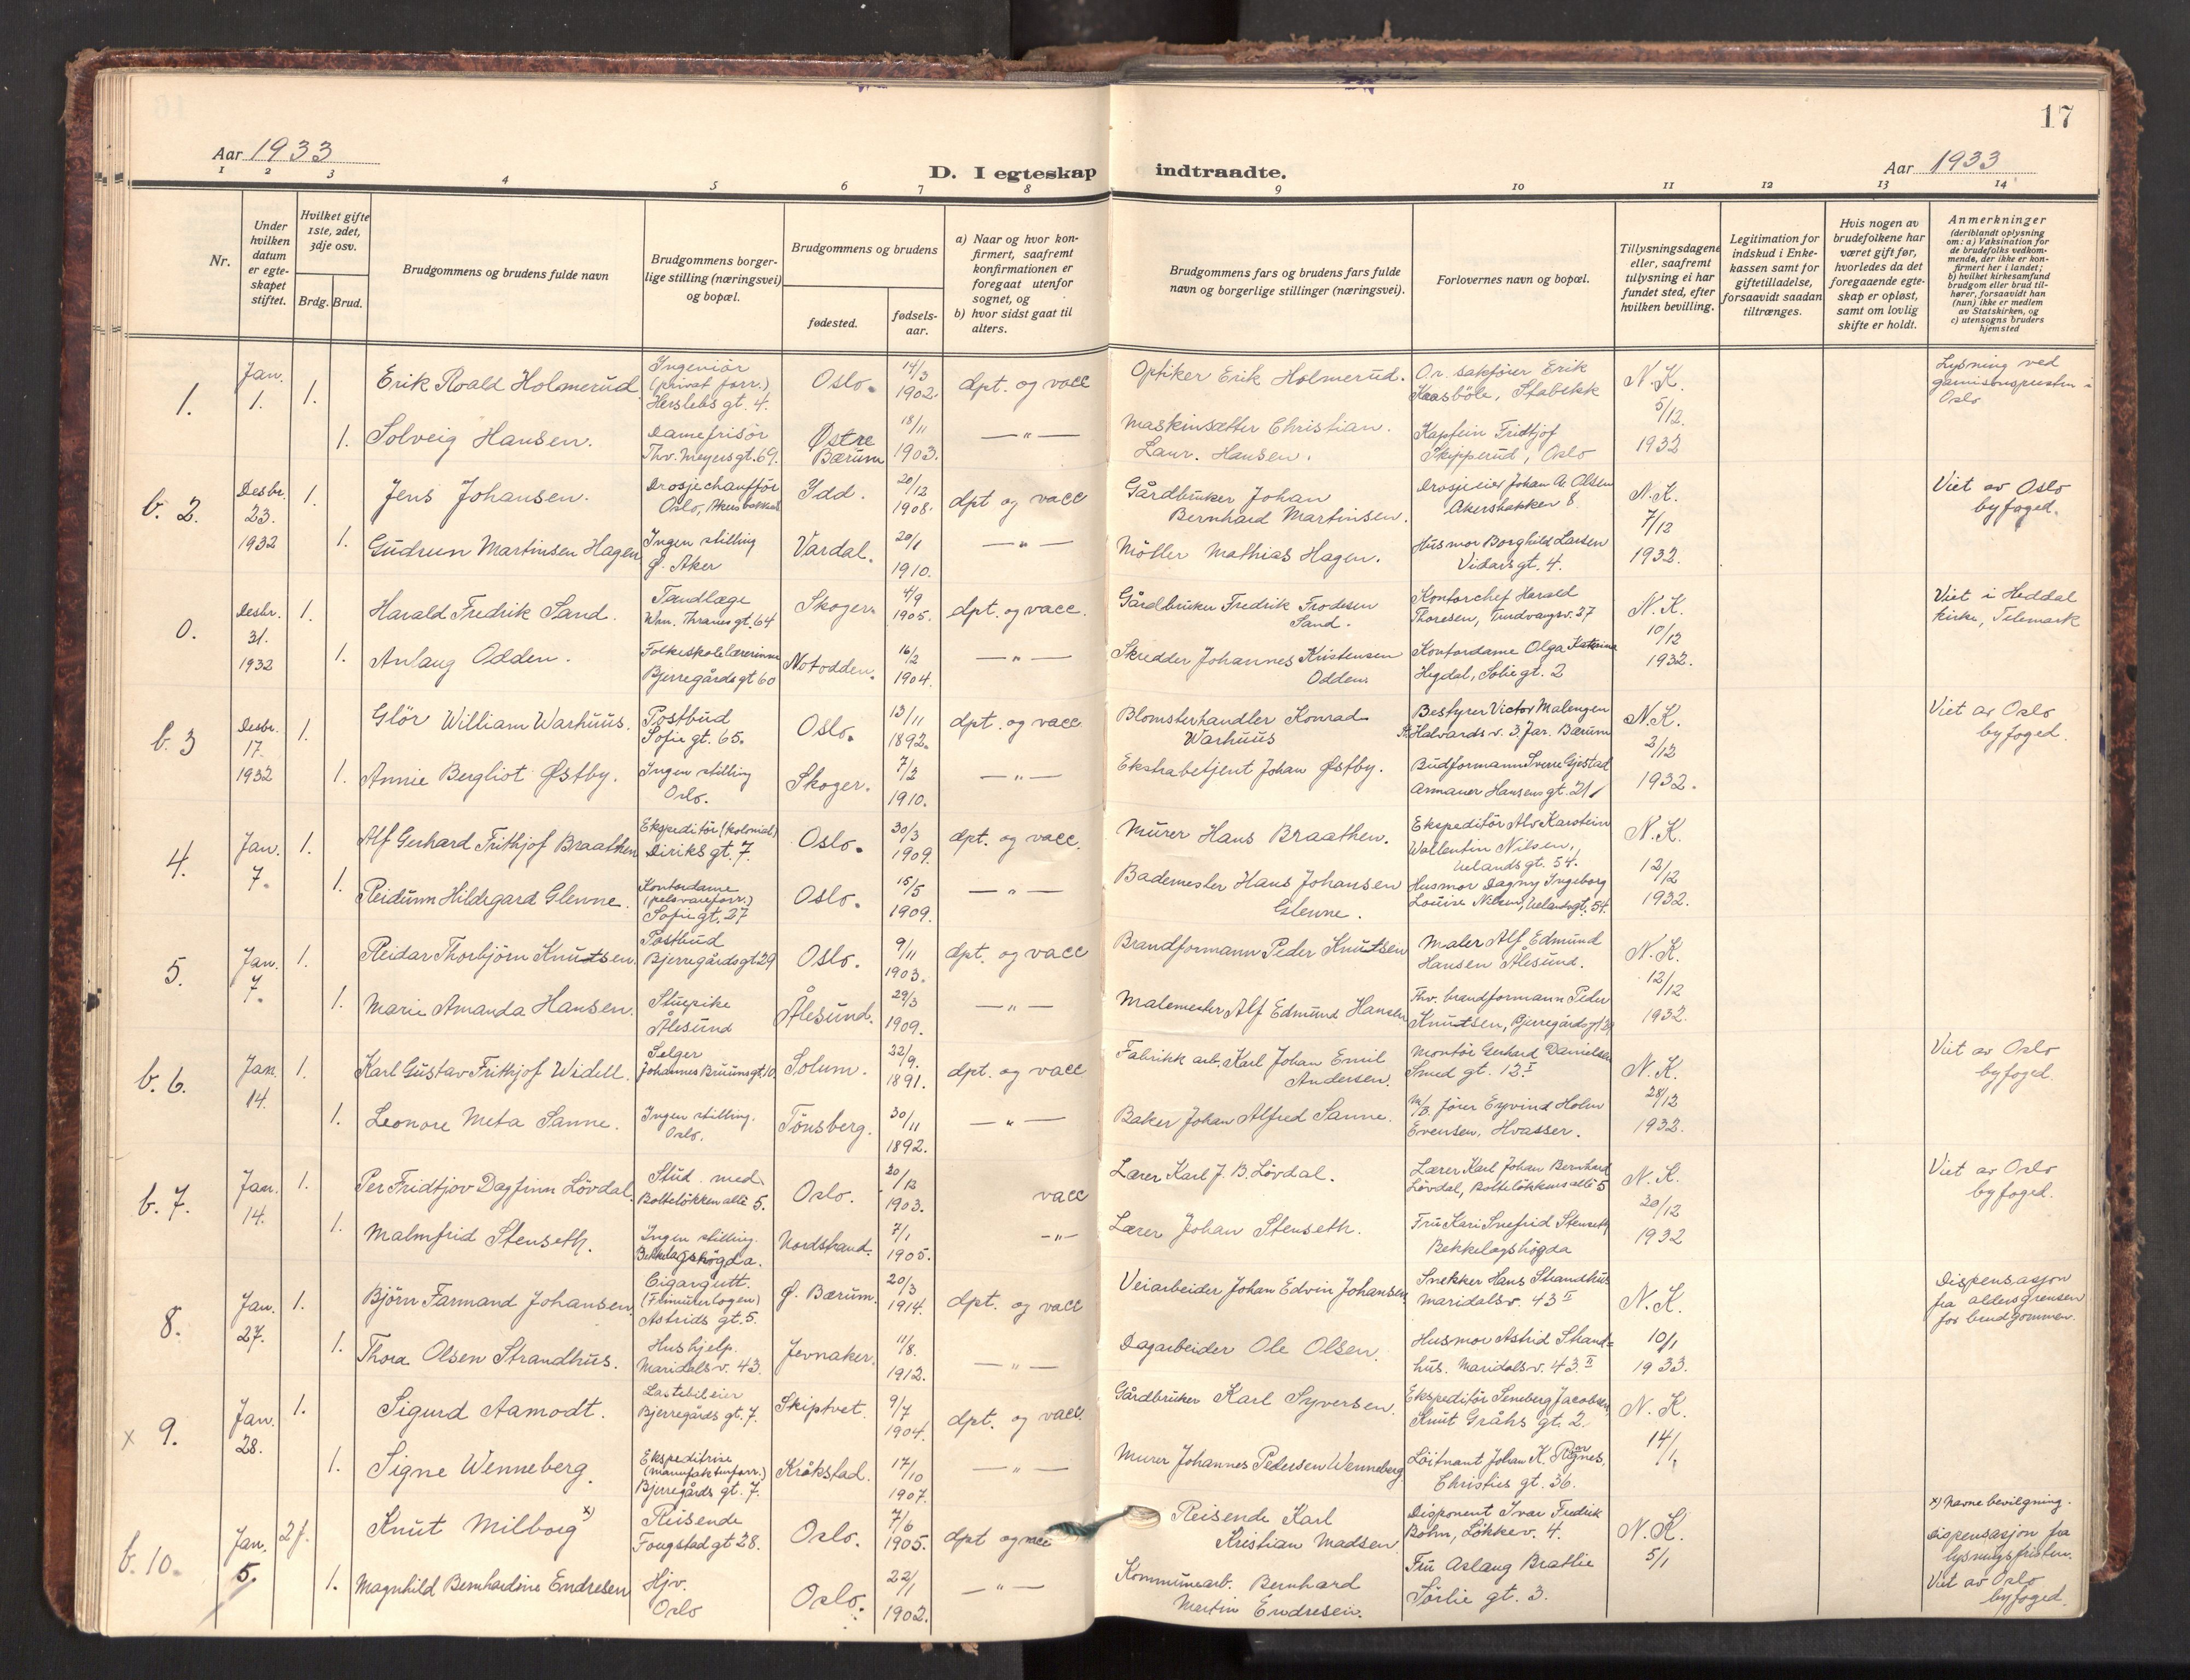 17
Aar 1933
D. I egteskap indtraadte.
Aar 1933
1 2 3 4 5 6 7 8 9 10 11 12 13 14
Nr.
Under hvilken datum er egteskapet stiftet.
Hvilket gifte 1ste, 2det, 3dje osv.
Brdg. Brud.
Brudgommens og brudens fulde navn
Brudgommens borgerlige stilling (næringsvei) og bopæl.
Brudgommens og brudens
fødested.
fødselsaar.
a) Naar og hvor konfirmert, saafremt konfirmationen er foregaat utenfor sognet, og
b) hvor sidst gaat til alters.
Brudgommens fars og brudens fars fulde navn og borgerlige stillinger (næringsvei).
Forlovernes navn og bopæl.
Tillysningsdagene eller, saafremt tillysning ei har fundet sted, efter hvilken bevilling.
Legitimation for indskud i Enkekassen samt for giftetilladelse, forsaavidt saadan tiltrænges.
Hvis nogen av brudefolkene har været gift før, hvorledes da det foregaaende egteskap er opløst, samt om lovlig skifte er holdt.
Anmerkninger
(deriblandt oplysning om: a) Vaksination for de brudefolks vedkommende, der ikke er konfirmert her i landet; b) hvilket kirkesamfund brudgom eller brud tilhører, forsaavidt han (hun) ikke er medlem av Statskirken, og c) utensogns bruders hjemsted
1. Jan. 1. 1. Erik Roald Holmerud. Ingeniör (privat forr.) Herslebs gt. 4. Oslo. 14/3 1902. dpt. og vacc Optiker Erik Holmerud. O.r. sakförer Erik Kaasböle, Stabekk N.K. 5/12. 1932 Lysning ved garnisonspresten i Oslo
1. Solveig Hansen. Damefrisör Thv. Meyersgt. 69. Østre Bærum 18/11 1903. — " — Maskinsætter Christian Laur. Hansen. Kaptein Fridtjof Skipperud, Oslo
b. 2. Desbr. 23. 1932 1. Jens Johansen. Drosjechaufför Oslo, Akersbakken Idd. 20/12 1908. dpt og vacc Gårdbruker Johan Bernhard Martinsen. Drosjeeier Johan A. Olsen Akersbakken 8 N.K. 7/12 1932. Viet av Oslo byfoged.
1. Gudrun Martinsen Hagen Ingen stilling Ø. Aker Vardal. 20/1 1910. — " — Möller Mathias Hagen. Husmor Borghild Larsen Vidarsgt. 4.
0. Desbr. 31. 1932 1. Harald Fredrik Sand. Tandlæge Wm. Thranesgt. 64 Skoger. 4/9 1905. dpt. og vacc. Gårdbruker Fredrik Frodesen Sand. Kontorchef Harald Thoresen, Tundvangsv. 27 N.K. 10/12 1932. Viet i Heddal kirke, Telemark
1. Anlaug Odden. Folkeskolelærerinne Bjerregårdsgt 60 Notodden. 16/2 1904. — " — Skredder Johannes Kristensen Odden. Kontordame Olga Katrina Hegdal, Sofiegt. 2
b. 3 Desbr. 17. 1932 1. Glör William Warhuus. Postbud Sofie gt. 65. Oslo. 13/11 1892. dpt. og vacc Blomsterhandler Konrad Warhuus Bestyrer Victor Malengen St. Halvards v. 3. Jar. Bærum N.K. 2/12 1932. Viet av Oslo byfoged.
1. Annie Bergliot Østby. Ingen stilling Oslo. Skoger. 7/2 1910. — " — Ekstrabetjent Johan Østby. Budformann Sverre Gjestad Armauer Hansens gt. 21
4. Jan. 7. 1. Alf Gerhard Frithjof Braathen Ekspeditör (kolonial) Diriks gt. 7. Oslo. 30/3 1909. dpt. og vacc. Murer Hans Braathen. Ekspeditör Alv Karstein Wallentin Nilsen, Uelandsgt. 54. N.K. 12/12 1932.
1. Reidunn Hildegard Glenne. Kontordame (pelsvareforr.) Sofiegt. 27 Oslo. 15/5 1909. — " — Bademester Hans Johansen Glenne. Husmor Dagny Ingeborg Louise Nilsen, Uelandsgt. 54.
5. Jan. 7. 1. Reidar Thorbjörn Knudtsen. Postbud Bjerregårdsgt 29 Oslo. 9/11 1903. dpt. og vacc Brandformann Peder Knudtsen Maler Alf Edmund Hansen Ålesund. N.K. 12/12 1932.
1. Marie Amanda Hansen. Stuepike Ålesund Ålesund. 29/3 1909. — " — Malemester Alf Edmund Hansen Thv. brandformann Peder Knudtsen, Bjerregårdsgt 29
b. 6. Jan. 14. 1. Karl Gustav Frithjof Widell. Selger Johannes Bruunsgt. 10. Solum. 22/9. 1891. dpt. og vacc Fabrikk arb. Karl Johan Emil Andersen. Montör Gerhard Danielsen Smed gt. 12 I N.K. 28/12 1932. Viet av Oslo byfoged.
1. Leonore Meta Sanne. Ingen stilling. Oslo. Tönsberg. 30/11 1892. — " — Baker Johan Alfred Sanne. M/B. förer Eyvind Holm Evensen, Hvasser.
b. 7. Jan. 14. 1. Per Fridtjov Dagfinn Lövdal. Stud. med. Bolteløkken allé 5. Oslo. 20/12 1903. vacc Lærer Karl J. B. Lövdal. Lærer Karl Johan Bernhard Lövdal, Bolteløkkens allé 5 N.K. 30/12 1932 Viet av Oslo byfoged.
1. Malmfrid Stenseth. Ingen stilling. Bekkelagshögda. Nordstrand. 7/1 1905. — " — Lærer Johan Stenseth. Fru Kari Snefrid Stenseth Bekkelagshögda
8. Jan. 27. 1. Björn Farmand Johansen Cigargutt. (Frimurerlogen) Astrids gt. 5. Ø. Bærum. 20/3 1914. dpt. og vacc Veiarbeider Johan Edvin Johansen Snekker Hans Strandhus Maridalsv. 43 II N.K. 10/1 1933. Dispensasjon fra aldersgrensen for brudgommen.
1. Thora Olsen Strandhus. Hushjelp. Maridalsv. 43. Jevnaker. 11/8. 1912. — " — Dagarbeider Ole Olsen. Husmor Astrid Strandhus. Maridalsv. 43. II
x 9. Jan. 28. 1. Sigurd Aamodt. Lastebileier Bjerregårds gt. 7. Skiptvet. 9/7 1904. dpt. og vacc. Gårdbruker Karl Syversen. Ekspeditör Jacobsen, Knut Gråhs gt. 2. N.K. 14/1.
1. Signe Wenneberg. Ekspeditrise (manufakturforr.) Bjerregårds gt. 7. Kråkstad. 17/10 1907. — " — Murer Johannes Pedersen Wenneberg Löitnant Johan K. Christies gt. 36.
b. 10. Jan. 5. 2f. Knut Milborg x) Reisende Fougstad gt 28. Oslo. 7/6 1905. dpt og vacc Reisende Karl Kristian Madsen. Disponent Ivar Fredrik Bohn, Løkkev. 4. N.K. 5/1 x) Navnebevilgning. Dispensasjon fra lysningsfristen. Viet av Oslo byfoged.
1. Magnhild Bernhardine Endresen Hjv. Oslo Oslo. 22/1 1902. — " — Kommunearb. Bernhard Martin Endresen. Fru Aslaug Bratlie Sørlie gt. 3.